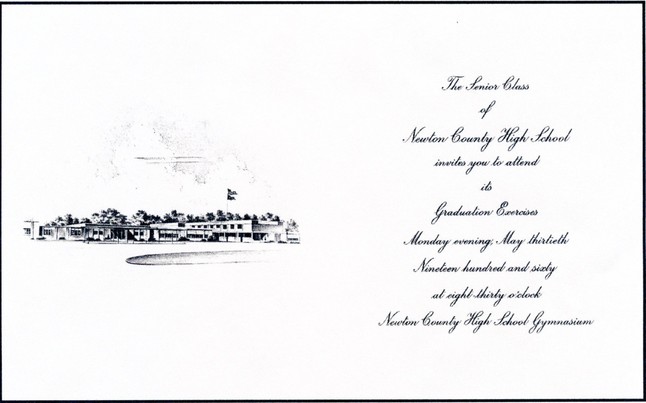 The Senior Class
of
Newton County High School
invites you to attend
its
Graduation Exercises
Monday evening, May thirtieth
Nineteen hundred and sixty
at eight-thirty o'clock
Newton County High School Gymnasium